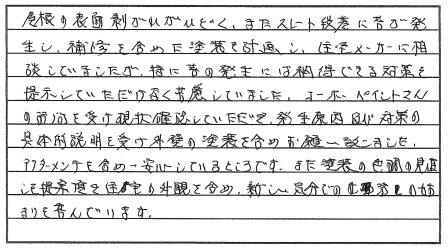 屋根の表面剥がれがひどく、またスレート段差に苔が発
生し、補修を含めた塗装を計画し、住宅メーカーに相
談していましたが、特に苔の発生には納得できる対策を
提示していただけなく苦慮していました。オーボーペイントさん
の訪問を受け現状確認していただき、発生原因及び対策の
具体的説明を受け外壁の塗装を含めお願い致しました。
アフターメンテも含め一安心しているところです。また塗装の色調の見直
しを提案頂き住宅の外観を含め、新しい気分での
まりを喜んでいます。